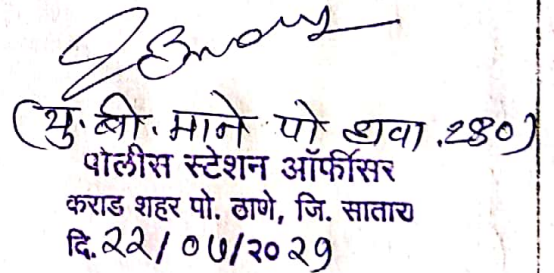 (यु. बी. माने पो हवा. 280)
पोलीस स्टेशन ऑफीसर
कराड शहर पो. ठाणे, जि. सातारा
दि. २२/०७/२०२१